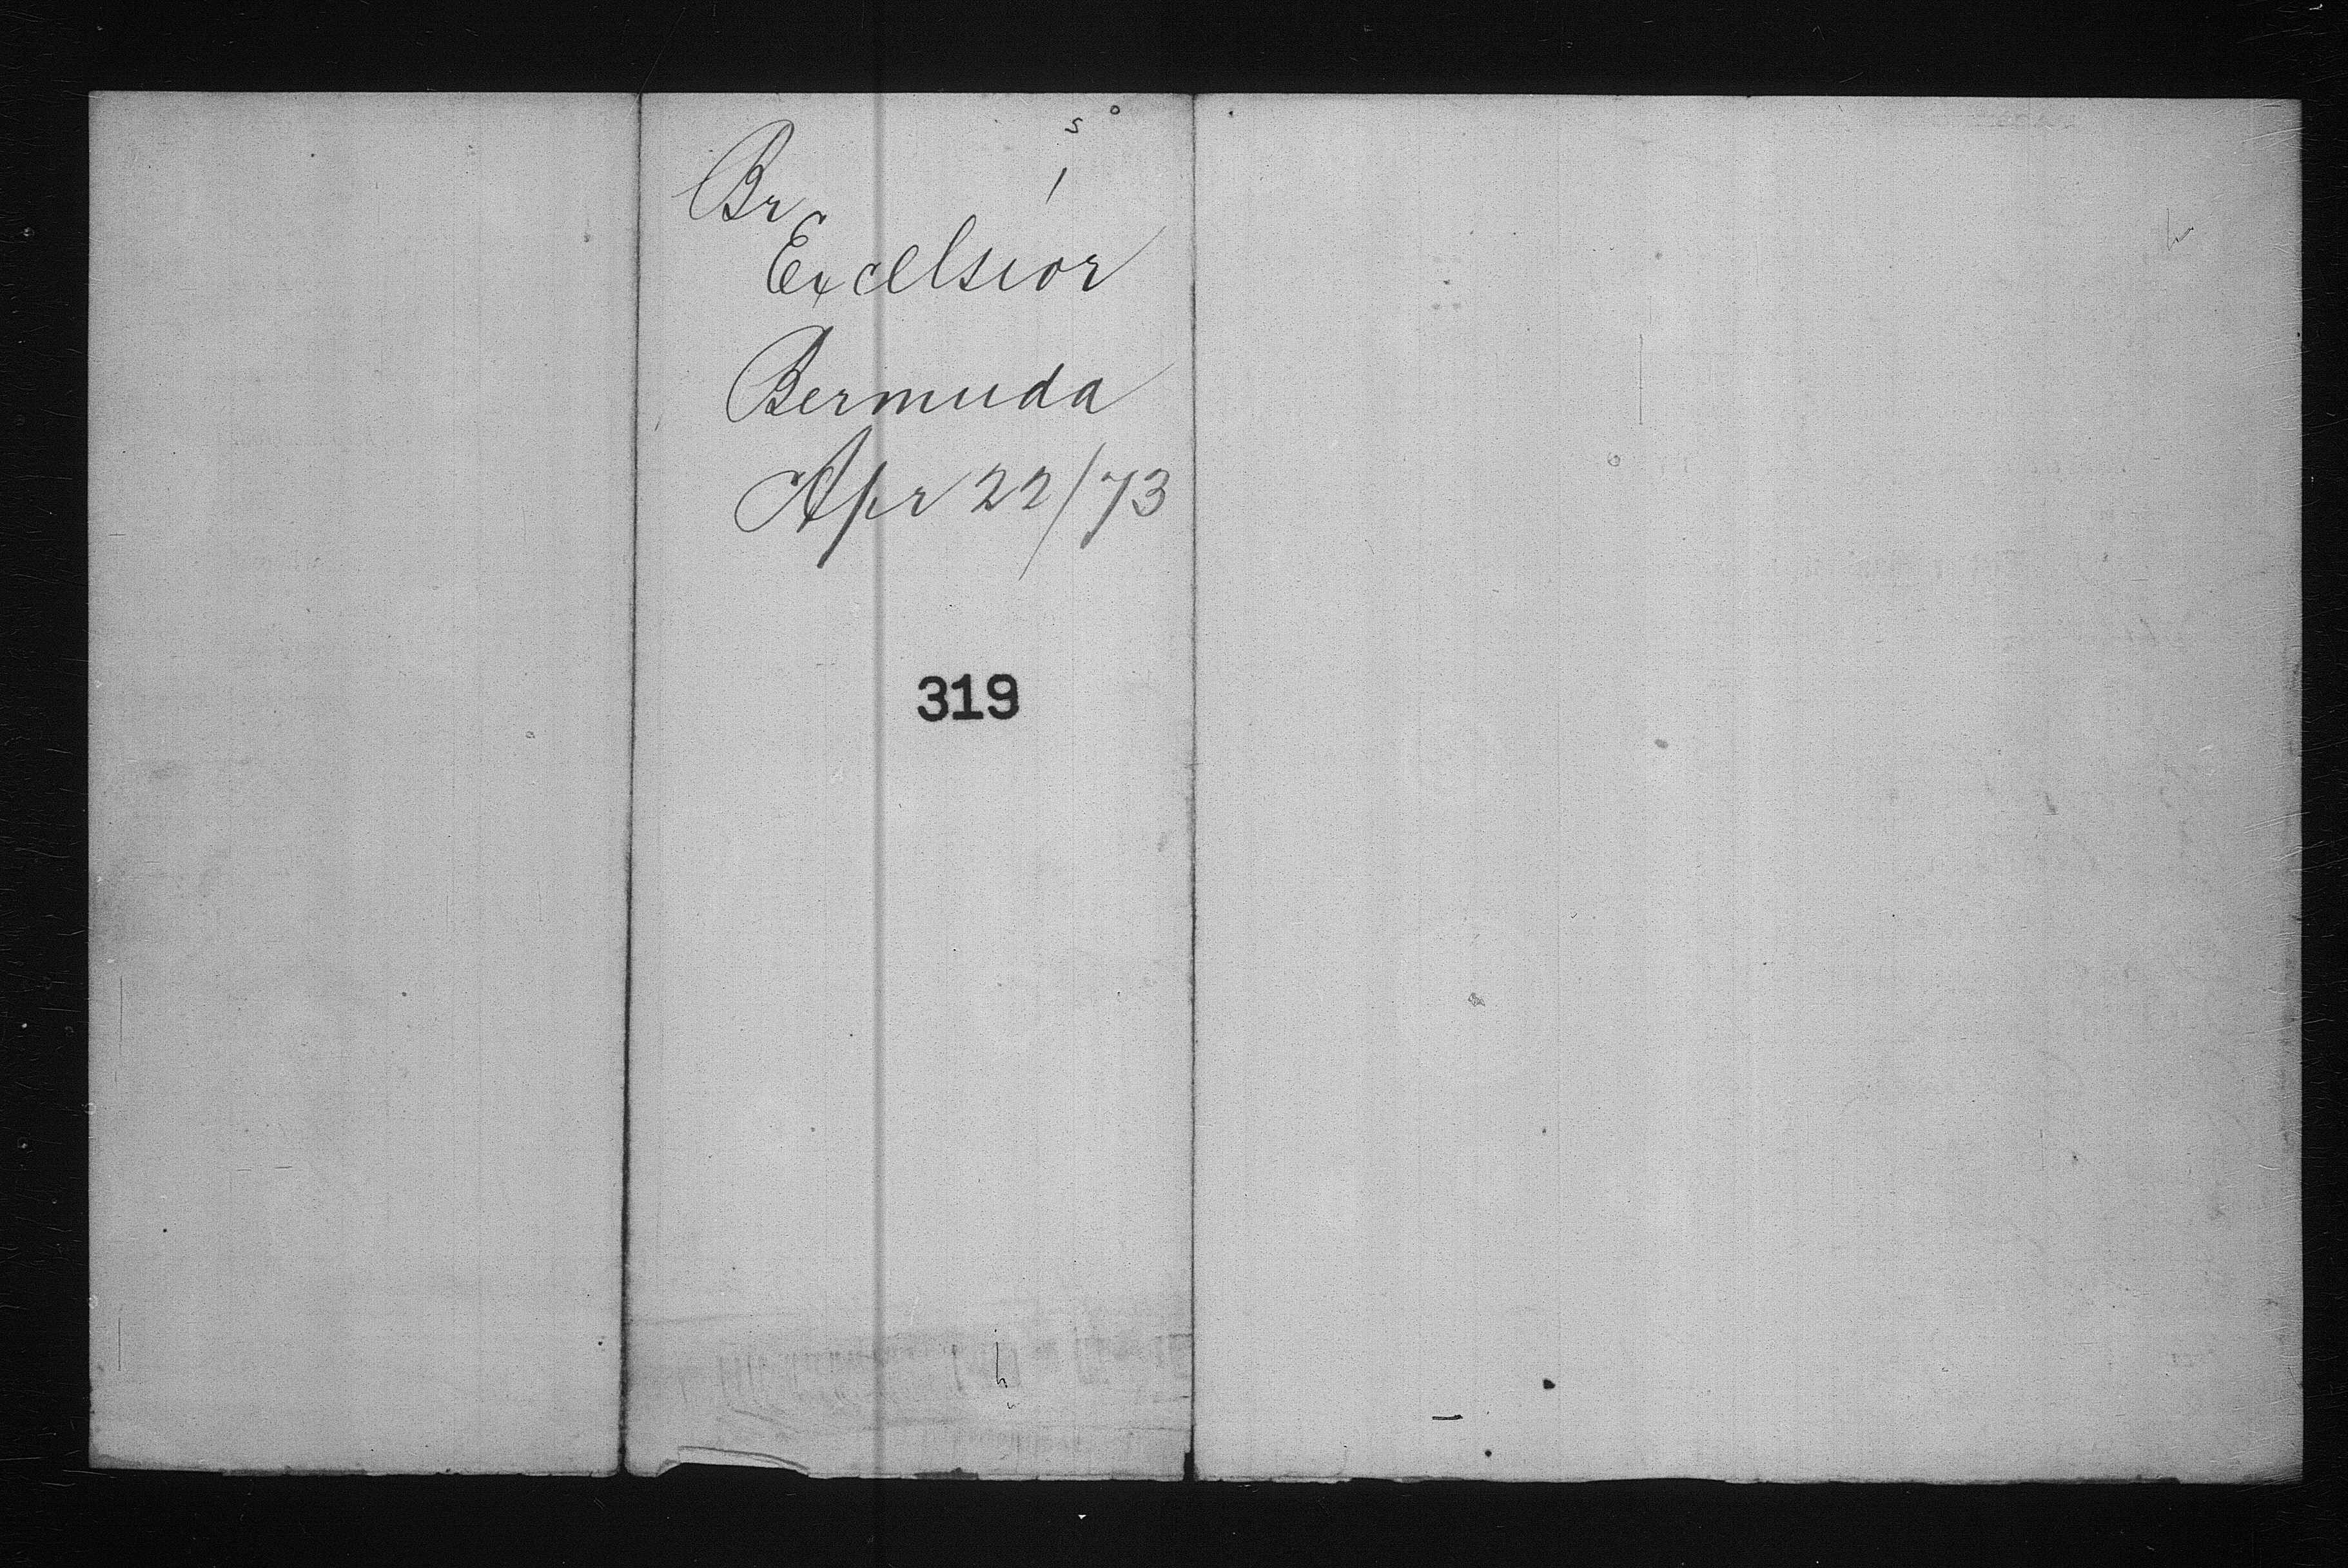 Br
Excelsior
Bermuda
Apr 22/73
319